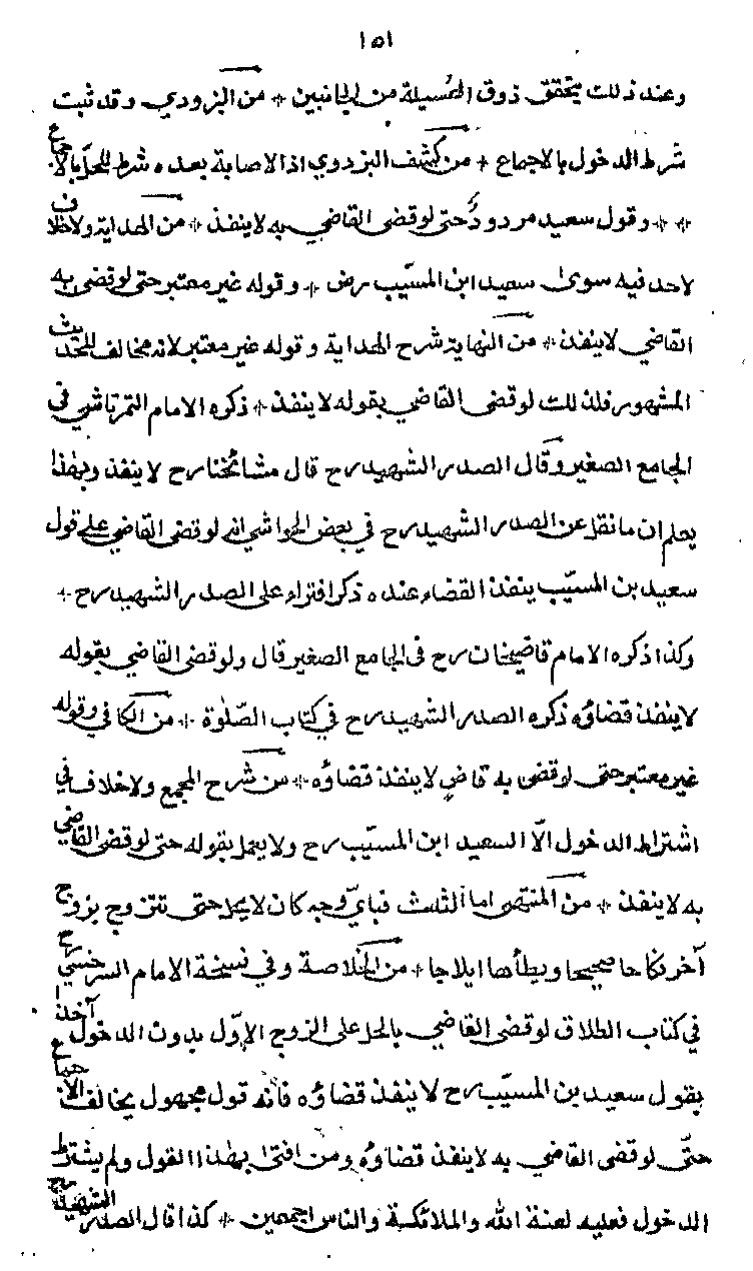 ١٥١
وعند ذلك يتحقق ذوق العُسيلة من الجانبين * من البزودي وقد ثبت
شرط الدخول بالاجماع * من كشف البزدوي اذ الاصابة بعده شرط للحل بالاجماع
* * وقول سعيد مردودٌ حتى لو قضى القاضي به لا ينفذ * من الهداية ولا خلاف
لاحد فيه سوى سعيد ابن المسيّب رض * وقوله غير معتبر حتى لو قضى به
القاضي لا ينفذ * من النهاية شرح الهداية وقوله غير معتبر لانه مخالف للحديث
المشهور فلذلك لو قضى القاضي بقوله لا ينفذ * ذكره الامام التمرتاشي في
الجامع الصغير وقال الصدر الشهيد رح قال مشائخنا رح لا ينفذ وبهذا
يعلم ان ما نقل عن الصدر الشهيد رح في بعض الحواشي انه لو قضى القاضي على قول
سعيد بن المسيّب ينفذ القضاء عنده ذكر افتراء على الصدر الشهيد رح *
وكذا ذكره الامام قاضيخان رح في الجامع الصغير قال ولو قضى القاضي بقوله
لا ينفذ قضاؤه ذكره الصدر الشهيد رح في كتاب الصّلٰوة * من الكافي وقوله
غير معتبر حتى لو قضى به قاضٍ لا ينفذ قضاؤه * من شرح المجمع ولا خلاف في
اشتراط الدخول الّا السعيد ابن المسيّب رح ولا يعمل بقوله حتى لو قضى القاضي
به لا ينفذ * من المنتهى اما الثلث فبايّ وجه كان لا يحل حتى تتزوج بزوج
آخر نكاحا صحيحا ويطأها ايلاجا * من الخلاصة وفي نسخة الامام السرخسي رح
في كتاب الطلاق لو قضى القاضي بالحل على الزوج الاوّل بدون الدخول آخذا
بقول سعيد بن المسيّب رح لا ينفذ قضاؤه فانه قول مجهول يخالف الاجماع
حتّى لو قضى القاضي به لا ينفذ قضاؤه ومن افتى بهذا القول ولم يشترط
الدخول فعليه لعنة الله والملائكة والناس اجمعين * كذا قال الصدر الشهيد رح